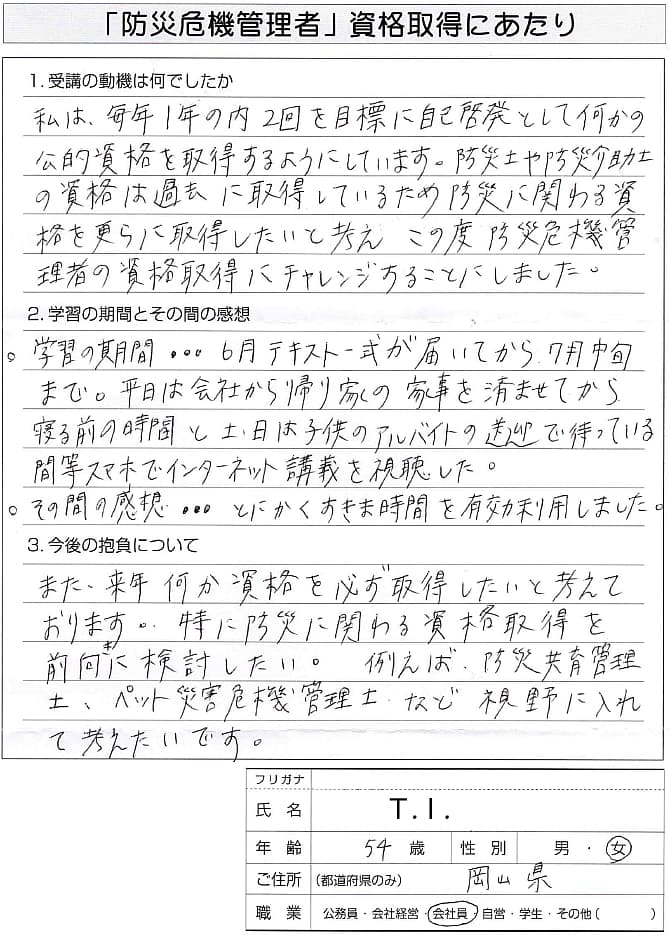 「防災危機管理者」資格取得にあたり
1. 受講の動機は何でしたか
私は、毎年1年の内2回を目標に自己啓発として何かの
公的資格を取得するようにしています。防災士や防災介助士
の資格は過去に取得しているため防災に関わる資
格を更らに取得したいと考え この度 防災危機管
理者の資格取得にチャレンジすることにしました。
2. 学習の期間とその間の感想
。学習の期間 ・・・ 6月テキスト一式が届いてから、7月中旬
まで。平日は会社から帰り家の家事を済ませてから
寝る前の時間と土、日は子供のアルバイトの送迎で待っている
間等スマホでインターネット講義を視聴した。
。その間の感想 ・・・ とにかくすきま時間を有効利用しました。
3. 今後の抱負について
また、来年何か資格を必ず取得したいと考えて
おります。特に防災に関わる資格取得を
前向きに検討したい。例えば、防災共育管理
士、ペット災害危機管理士、など視野に入れ
て考えたいです。
フリガナ
氏名 T.I.
年齢 54歳 性別 男・女
ご住所 (都道府県のみ) 岡山県
職業 公務員・会社経営・会社員・自営・学生・その他( )